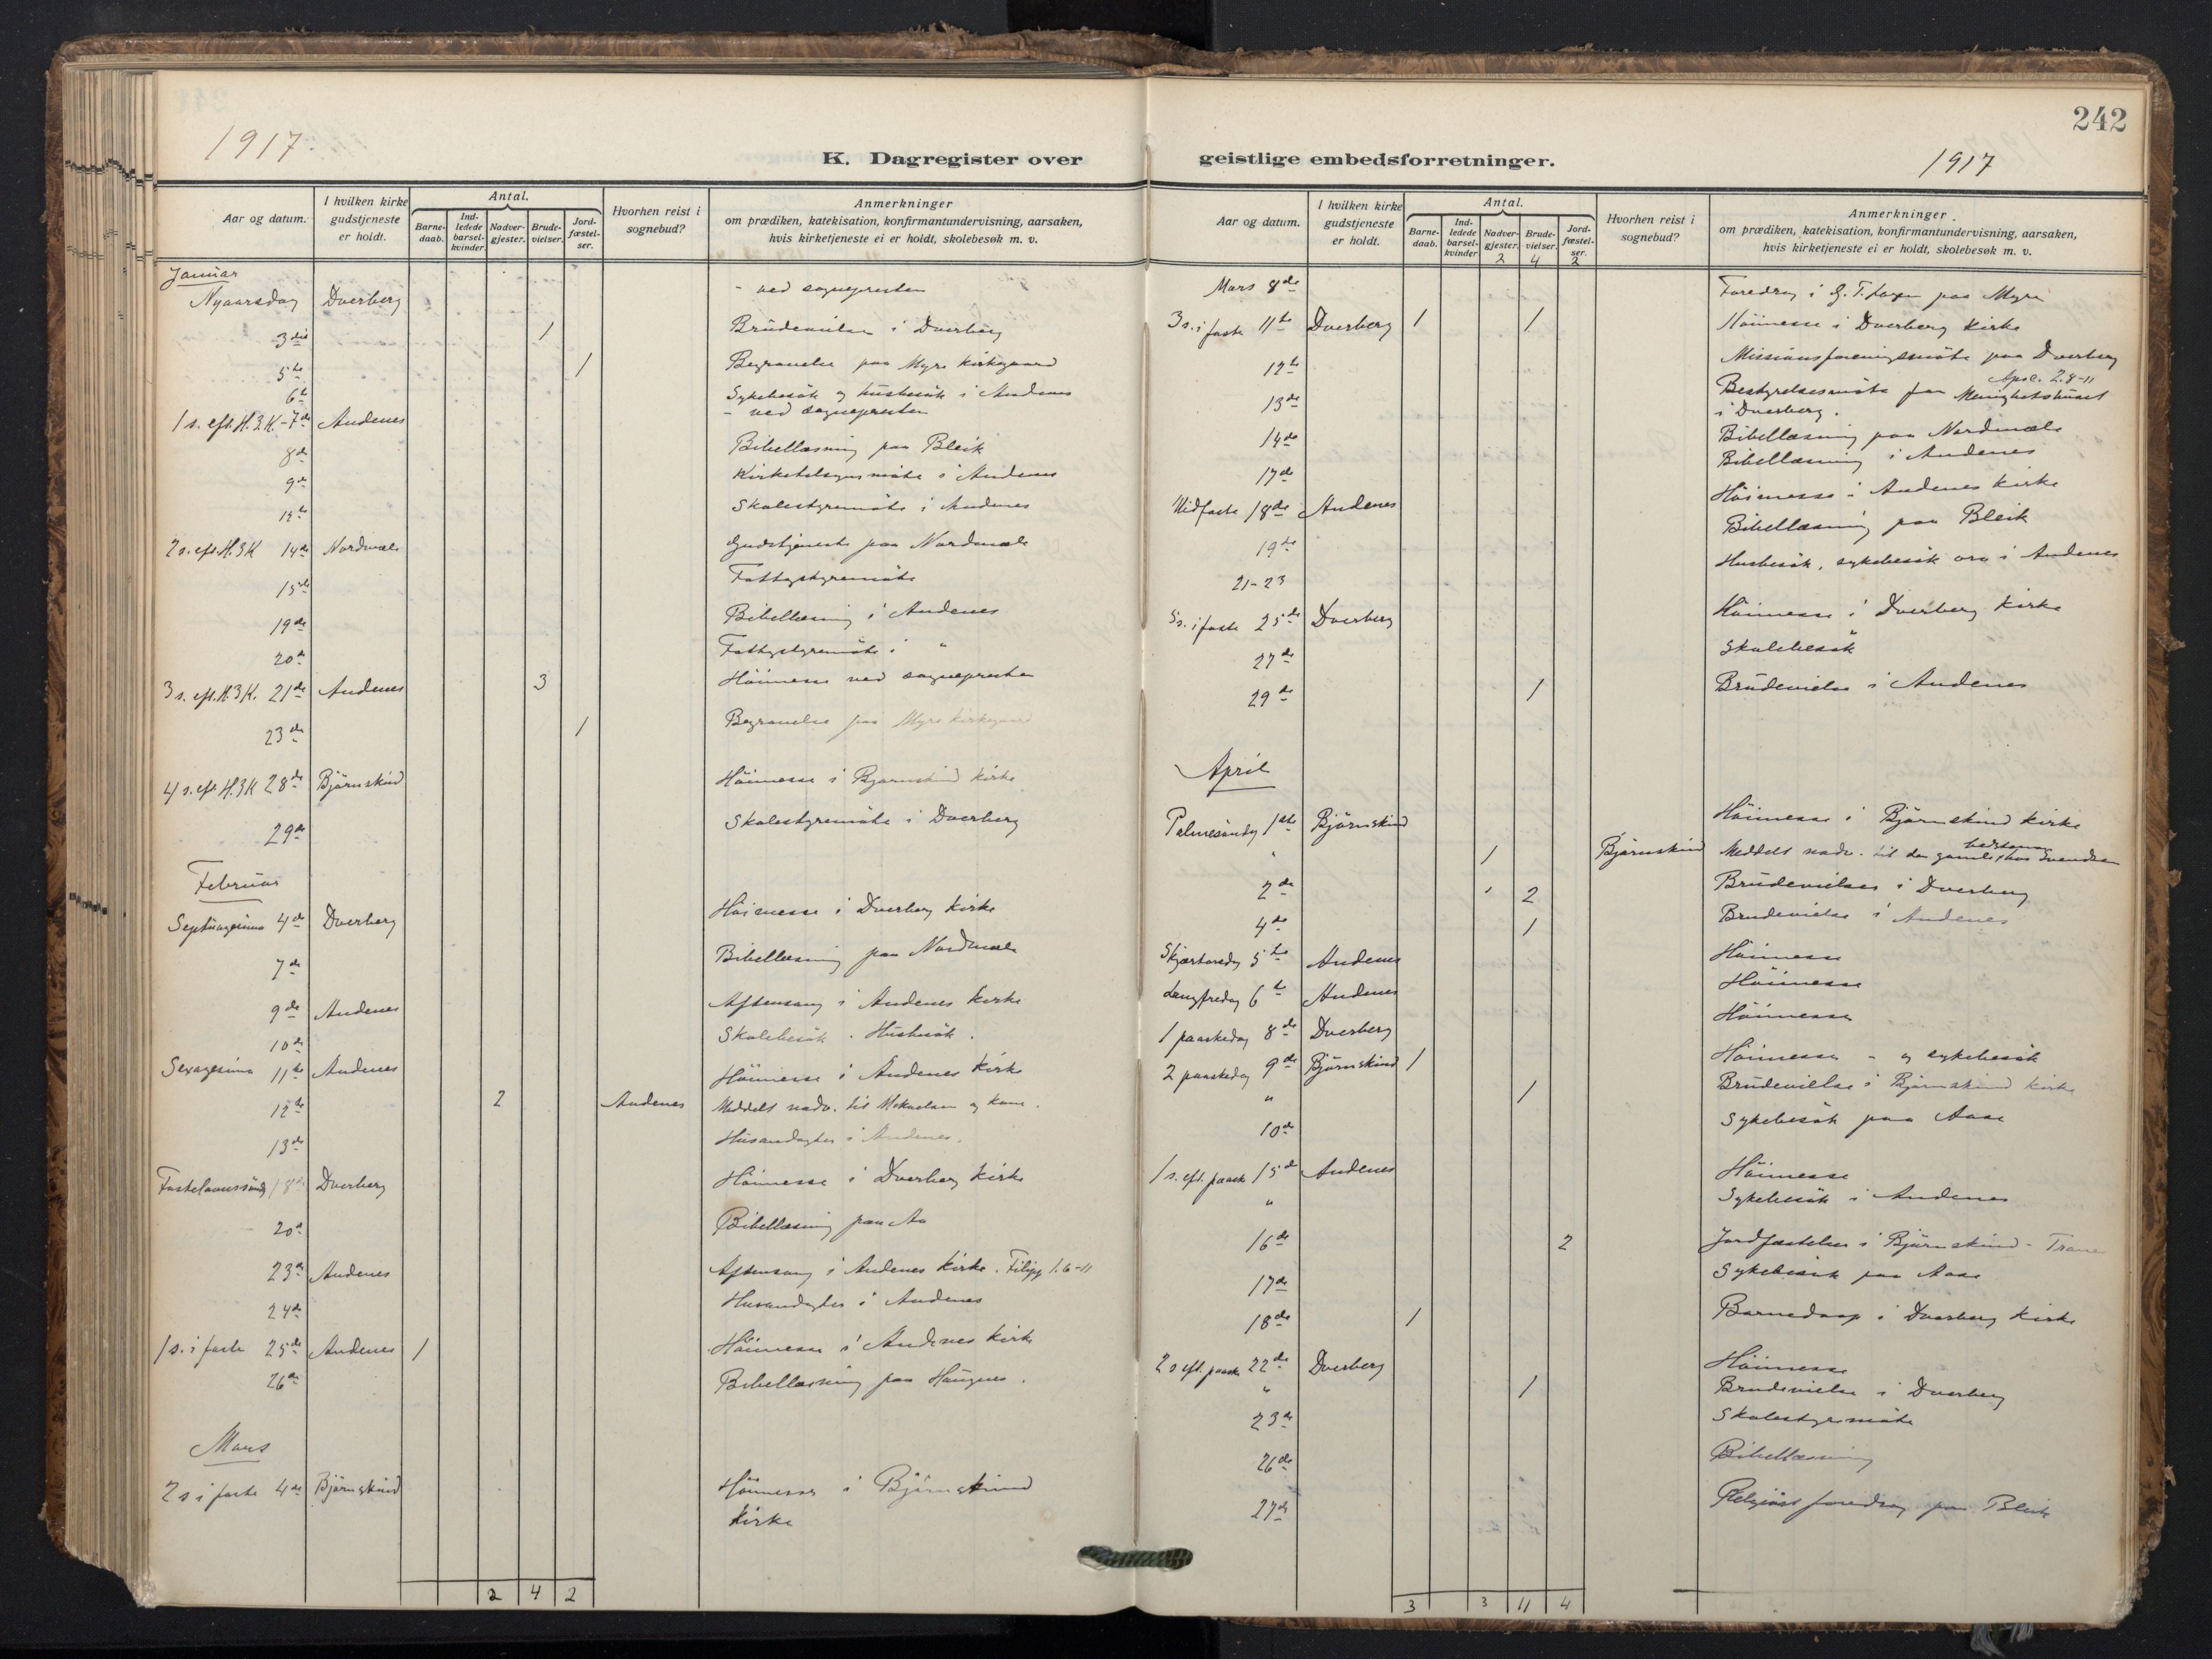 1917
K. Dagregister over
Aar og datum.
I hvilken kirke gudstjeneste er holdt.
Antal.
Barne-daab.
Ind-ledede barsel-kvinder.
Nadver-gjester.
Brude-vielser.
Jord-fæstel-ser.
Hvorhen reist i sognebud?
Anmerkninger
om prædiken, katekisation, konfirmantundervisning, aarsaken,
hvis kirketjeneste ei er holdt, skolebesøk m. v.
Januar
Nyaarsdag Dverberg - ved sognepresten
3die 1 Brüdevielse i Dverberg
5te 1 Begravelse paa Myre kirkegaard
6te Sykebesök og husbesök i Andenes
1 s. eft. H.3.K. - 7de Andenes - ved sognepresten
8de Bibellæsning paa Bleik
9de Kirketilsynsmöte i Andenes
12te Skolestyremöte i Andenes
2 s. eft. H.3K 14de Nordmæle Gudstjeneste paa Nordmæle
15de Fattigstyremöte
19de Bibellæsning i Andenes
20de Fattigstyremöte i "
3 s. eft. H.3K. 21de Andenes 3 Höimesse ved sognepresten
23de 1 Begravelse paa Myre kirkegaard
4 s. eft. H.3K 28de Björnskind Höimesse i Bjørnskind kirke
29de Skolestyremöte i Dverberg
Februar
Septuagesima 4de Dverberg Höimesse i Dverberg kirke
7de Bibellæsning paa Nordmæle
9de Andenes Aftensang i Andenes kirke
10de Skolebesök. Husbesök.
Sexagesima 11te Andenes Höimesse i Andenes kirke
12te 2 Andenes Meddelt nadv. til Mikaelsen og kone.
13de Husandagter i Andenes.
Fastelavnssöndag 18de Dverberg Höimesse i Dverberg kirke
20de Bibellæsning paa Aa
23de Andenes Aftensang i Andenes kirke. Filipp 1.6-11
24de Husandagter i Andenes
1 s. i faste 25de Andenes 1 Höimesse i Andenes kirke
26de Bibellæsning paa Haugnes.
Mars
2 s i faste 4de Björnskind Höimesse i Björnskind
kirke
2 4 2
242
geistlige embedsforretninger.
1917
Aar og datum.
I hvilken kirke gudstjeneste er holdt.
Antal.
Barne-daab.
Ind-ledede barsel-kvinder
Nadver-gjester.
Brude-vielser.
Jord-fæstel-ser.
2 4 2
Hvorhen reist i sognebud?
Anmerkninger
om prædiken, katekisation, konfirmantundervisning, aarsaken,
hvis kirketjeneste ei er holdt, skolebesøk m. v.
Mars 8de Foredrag i G. T. paa Myre
3 s. i faste 11te Dverberg 1 1 Höimesse i Dverberg kirke
12te Missionsforeningsmöte paa Dverberg
Apoc. 2.8-11
13de Bestyrelsesmöte for Menighetshuset
i Dverberg.
14de Bibellæsning paa Nordmæle
17de Bibellæsning i Andenes
Midfaste 18de Andenes Höimesse i Andenes kirke
19de Bibellæsning paa Bleik
21-23 Husbesök, sykebesök osv i Andenes
5 s. i faste 25de Dverberg Höimesse i Dverberg kirke
27de Skolebesök
29de 1 Brüdevielse i Andenes
April
Palmesöndag 1ste Björnskind Höimesse i Björnskind kirke
" 1 Björnskind Meddelt nadv. til den gamle hos Svendsen
2de 2 Brüdevielser i Dverberg
4de 1 Brudevielse i Andenes
Skjærtorsdag 5te Andenes Höimesse
Langfredag 6te Andenes Höimesse
1 paaskedag 8de Dverberg Höimesse
2 paaskedag 9de Björnskind 1 Höimesse - og sykebesök
" 1 Brüdevielse i Björnskind kirke
10de Sykebesök paa Aase
1 s. eft. paaske 15de Andenes Höimesse
" Sykebesök i Andenes
16de 2 Jordfæstelser i Björnskind -
17de Sykebesök paa Aase
18de 1 Barnedaap i Dverberg kirke
2 s eft. paaske 22de Dverberg Höimesse
" 1 Brudevielse i Dverberg
23de Skolestyremöte
26de Bibellæsning
27de Religiöst foredrag paa Bleik
3 3 11 4